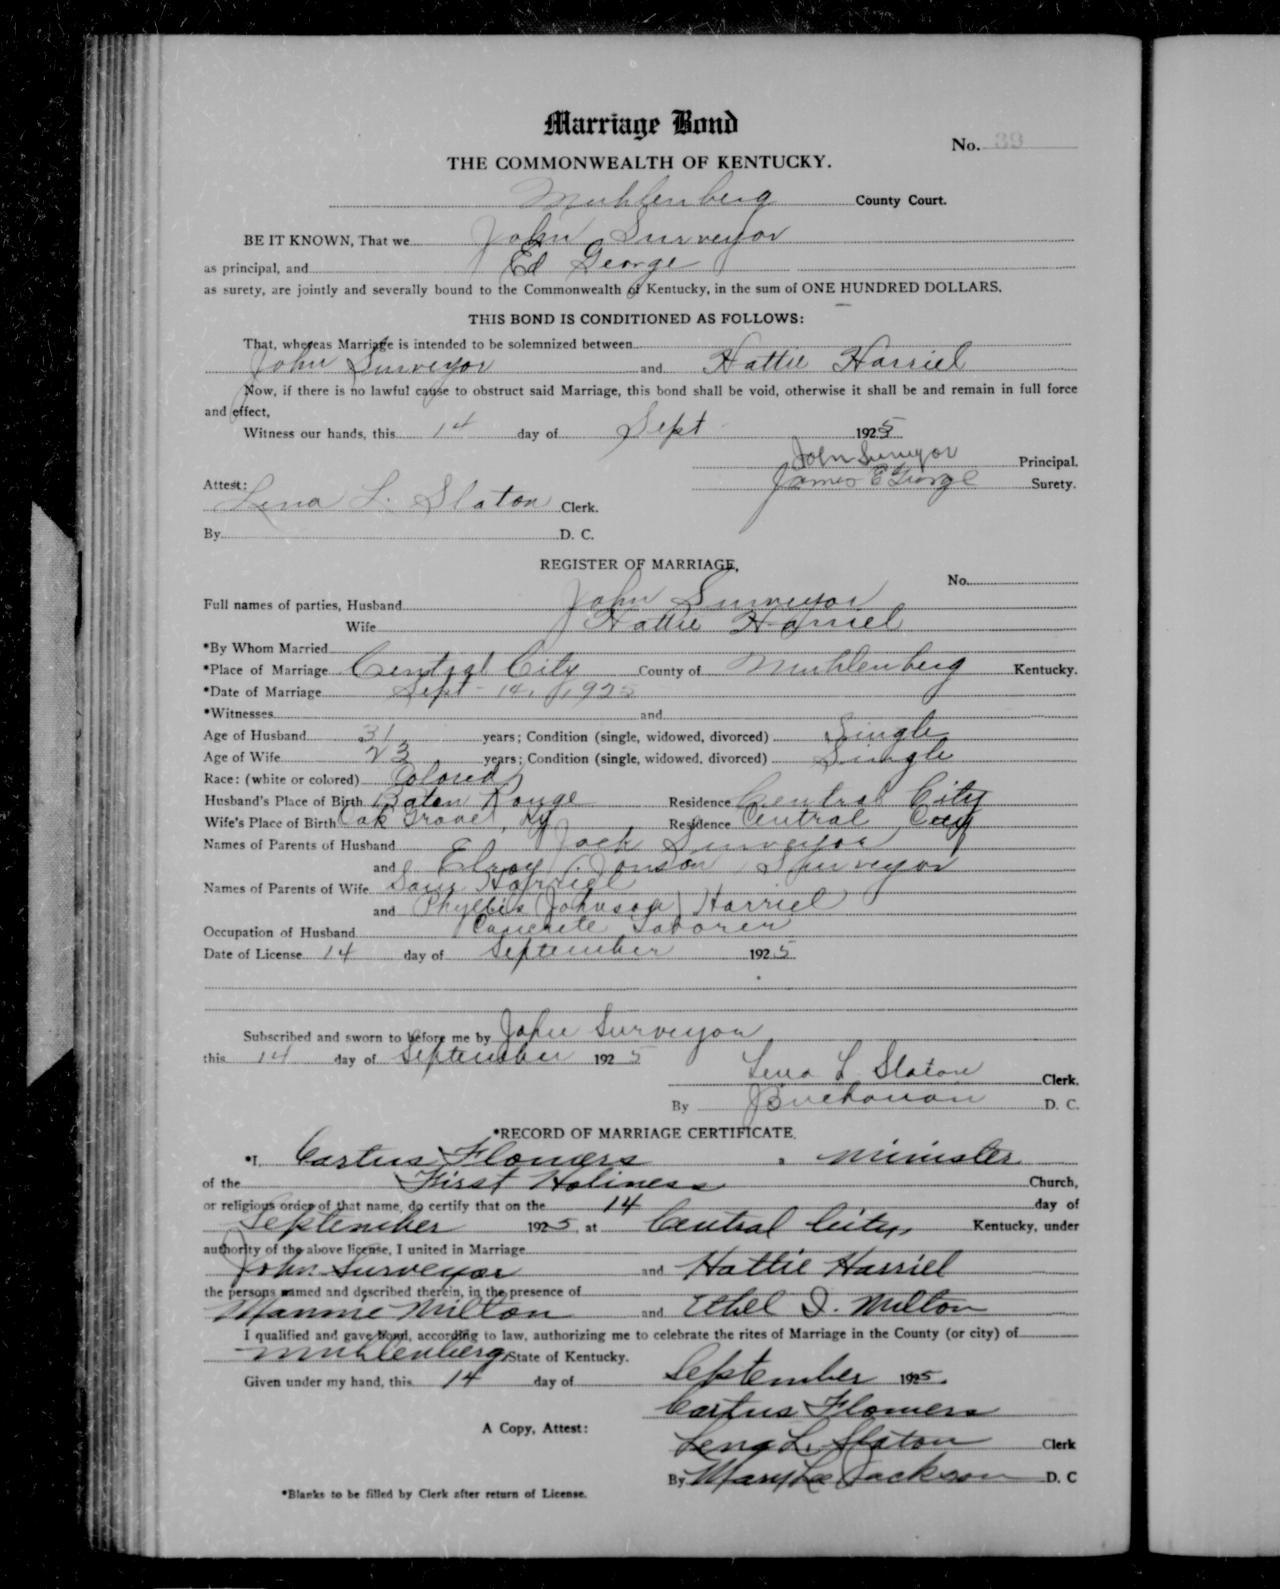 Marriage Bond
No. 39
THE COMMONWEALTH OF KENTUCKY.
Muhlenberg County Court.
BE IT KNOWN, That we John Surveyor
as principal, and Ed George
as surety, are jointly and severally bound to the Commonwealth of Kentucky, in the sum of ONE HUNDRED DOLLARS.
THIS BOND IS CONDITIONED AS FOLLOWS:
That, whereas Marriage is intended to be solemnized between
John Surveyor and Hattie Harriel
Now, if there is no lawful cause to obstruct said Marriage, this bond shall be void, otherwise it shall be and remain in full force
and effect,
Witness our hands, this 14 day of Sept 1925
John Surveyor Principal.
James E George Surety.
Attest:
Lena L. Slaton Clerk.
By D. C.
REGISTER OF MARRIAGE,
No.
Full names of parties, Husband John Surveyor
Wife Hattie Harriel
*By Whom Married
*Place of Marriage Central City County of Muhlenberg Kentucky.
*Date of Marriage Sept - 14, 1925
*Witnesses and
Age of Husband 31 years; Condition (single, widowed, divorced) Single
Age of Wife 23 years; Condition (single, widowed, divorced) Single
Race: (white or colored) Colored
Husband's Place of Birth Baton Rouge Residence Central City
Wife's Place of Birth Oak Grove, Ky Residence Central City
Names of Parents of Husband Jack Surveyor
and Elroy (Jonson) Surveyor
Names of Parents of Wife Harriel
and Phyllis (Johnson) Harriel
Occupation of Husband Concrete Laborer
Date of License 14 day of September 1925
Subscribed and sworn to before me by John Surveyor
this 14 day of September 1925
Lena L. Slaton Clerk.
By J Buchanan D. C.
*RECORD OF MARRIAGE CERTIFICATE.
*I, Cartus Flowers, minister
of the First Holiness Church,
or religious order of that name, do certify that on the 14 day of
September 1925, at Central City, Kentucky, under
authority of the above license, I united in Marriage
John Surveyor and Hattie Harriel
the persons named and described therein, in the presence of
Mannie Milton and Ethel D. Milton
I qualified and gave bond, according to law, authorizing me to celebrate the rites of Marriage in the County (or city) of
Muhlenberg, State of Kentucky.
Given under my hand, this 14 day of September 1925.
Cartus Flowers
A Copy, Attest:
Lena L. Slaton Clerk
By Mary Lee Jackson D. C
*Blanks to be filled by Clerk after return of License.